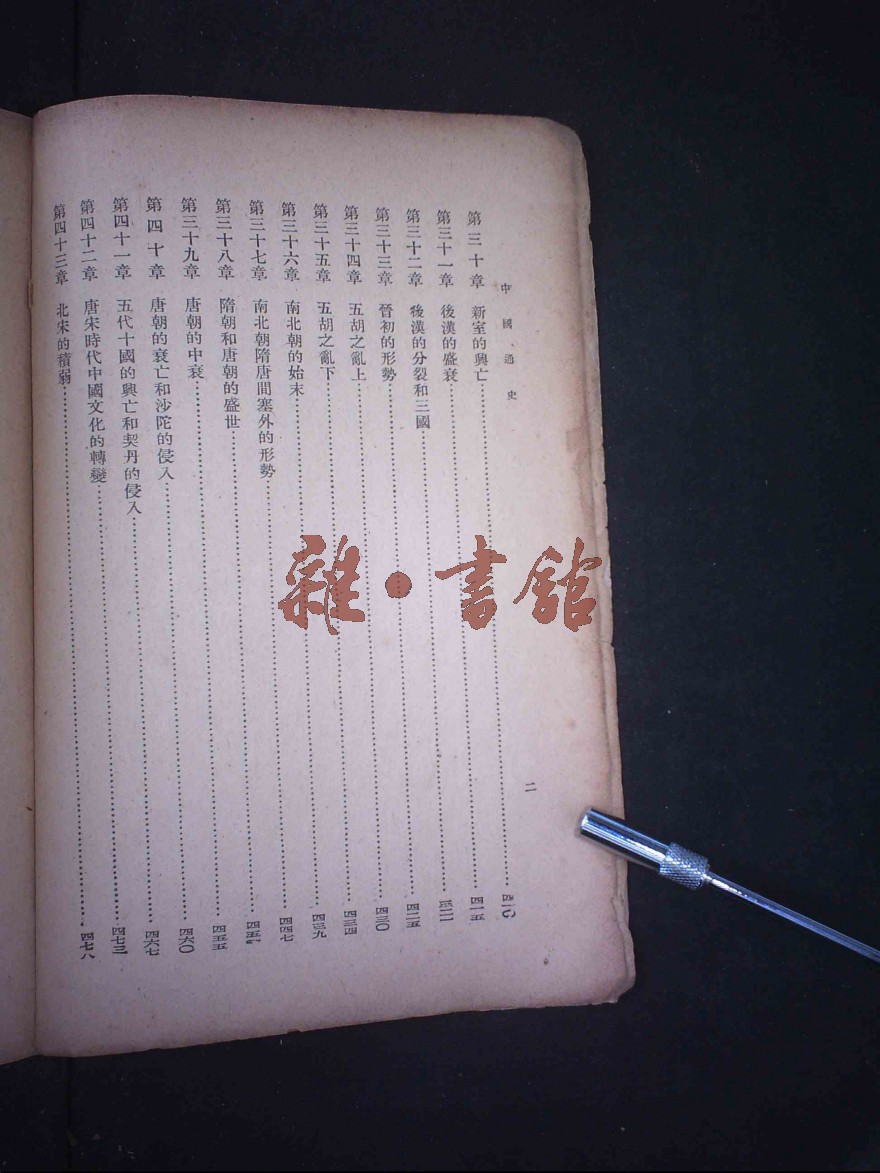 中國通史
二
第三十章 新室的興亡……四一〇
第三十一章 後漢的盛衰……四一五
第三十二章 後漢的分裂和三國……
第三十三章 晉初的形勢……四二五
第三十四章 五胡之亂上……四三〇
第三十五章 五胡之亂下……四三四
第三十六章 南北朝的始末……四三九
第三十七章 南北朝隋唐間塞外的形勢……四四七
第三十八章 隋朝和唐朝的盛世……四五一
第三十九章 唐朝的中衰……四五五
第四十章 唐朝的衰亡和沙陀的侵入……四六〇
第四十一章 五代十國的興亡和契丹的侵入……四六七
第四十二章 唐宋時代中國文化的轉變……四七三
第四十三章 北宋的積弱……四七八
雜·書舘